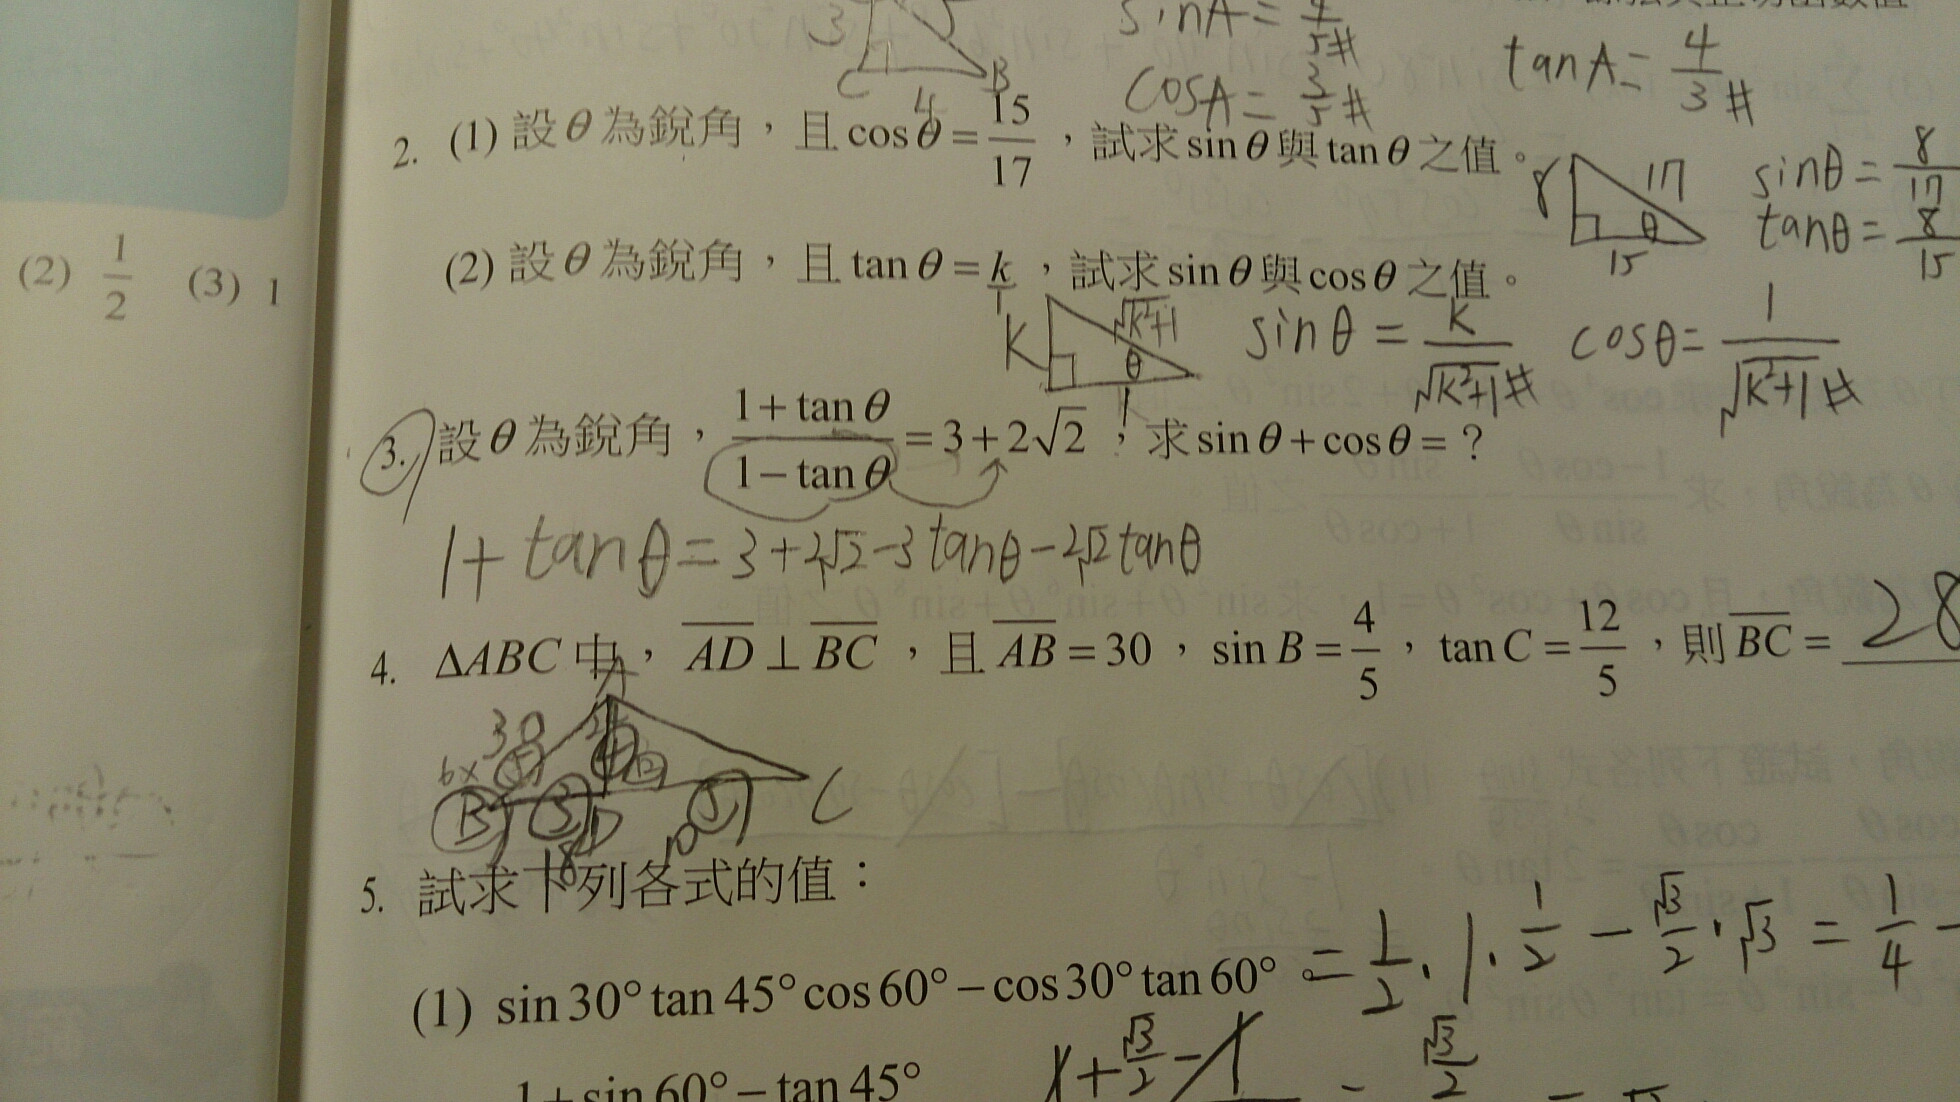 3 5
C 4 B
sinA = 4/5 #
cosA = 3/5 #
tanA = 4/3 #
2. (1) 設θ為銳角，且 cosθ = 15/17 ，試求 sinθ 與 tanθ 之值。
8 17 θ 15
sinθ = 8/17
tanθ = 8/15
(2) 設θ為銳角，且 tanθ = k/1 ，試求 sinθ 與 cosθ 之值。
K √K²+1 θ 1
sinθ = K/√K²+1 # cosθ = 1/√K²+1 #
(2) 1/2 (3) 1
3. 設θ為銳角， (1+tanθ)/(1−tanθ) = 3+2√2 ，求 sinθ+cosθ = ？
1+tanθ = 3+2√2-3tanθ-2√2tanθ
4. ΔABC 中， AD ⊥ BC ，且 AB = 30 ， sin B = 4/5 ， tan C = 12/5 ，則 BC = 28
A
30 5 4 12
6x B 3 D 5 C
18 10
5. 試求下列各式的值：
(1) sin 30° tan 45° cos 60° − cos 30° tan 60° = 1/2 · 1 · 1/2 − √3/2 · √3 = 1/4 −
1 + sin 60° − tan 45°
1 + √3/2 − 1 = √3/2 =